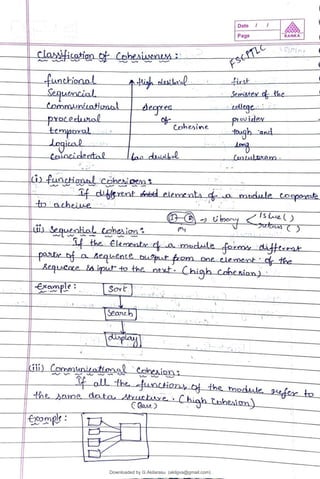 Date / /
Page
RANKA
Classification of Cohesiveness :
FSCPTLC
functional High desirable first
Sequencial Semester of the
Communicational degree college
procedural of provider
temporal Cohesine tough and
Logical long
Coincidental low desirable Curiculuram
(i) functional cohesion :
If different elements of a module cooperate
to acheive
→ library
(ii) Sequential cohesion :
If the Elements of a module forms different
parts of a sequence output from one element of the
sequence is input to the next. (high cohesion)
Example :
Sort
Search
display
(iii) Communicational Cohesion :
If all the functions of the module refer to
the same data structure. (high Cohesion)
(Base)
Example :
Downloaded by G Akilarasu (akilgvs@gmail.com)